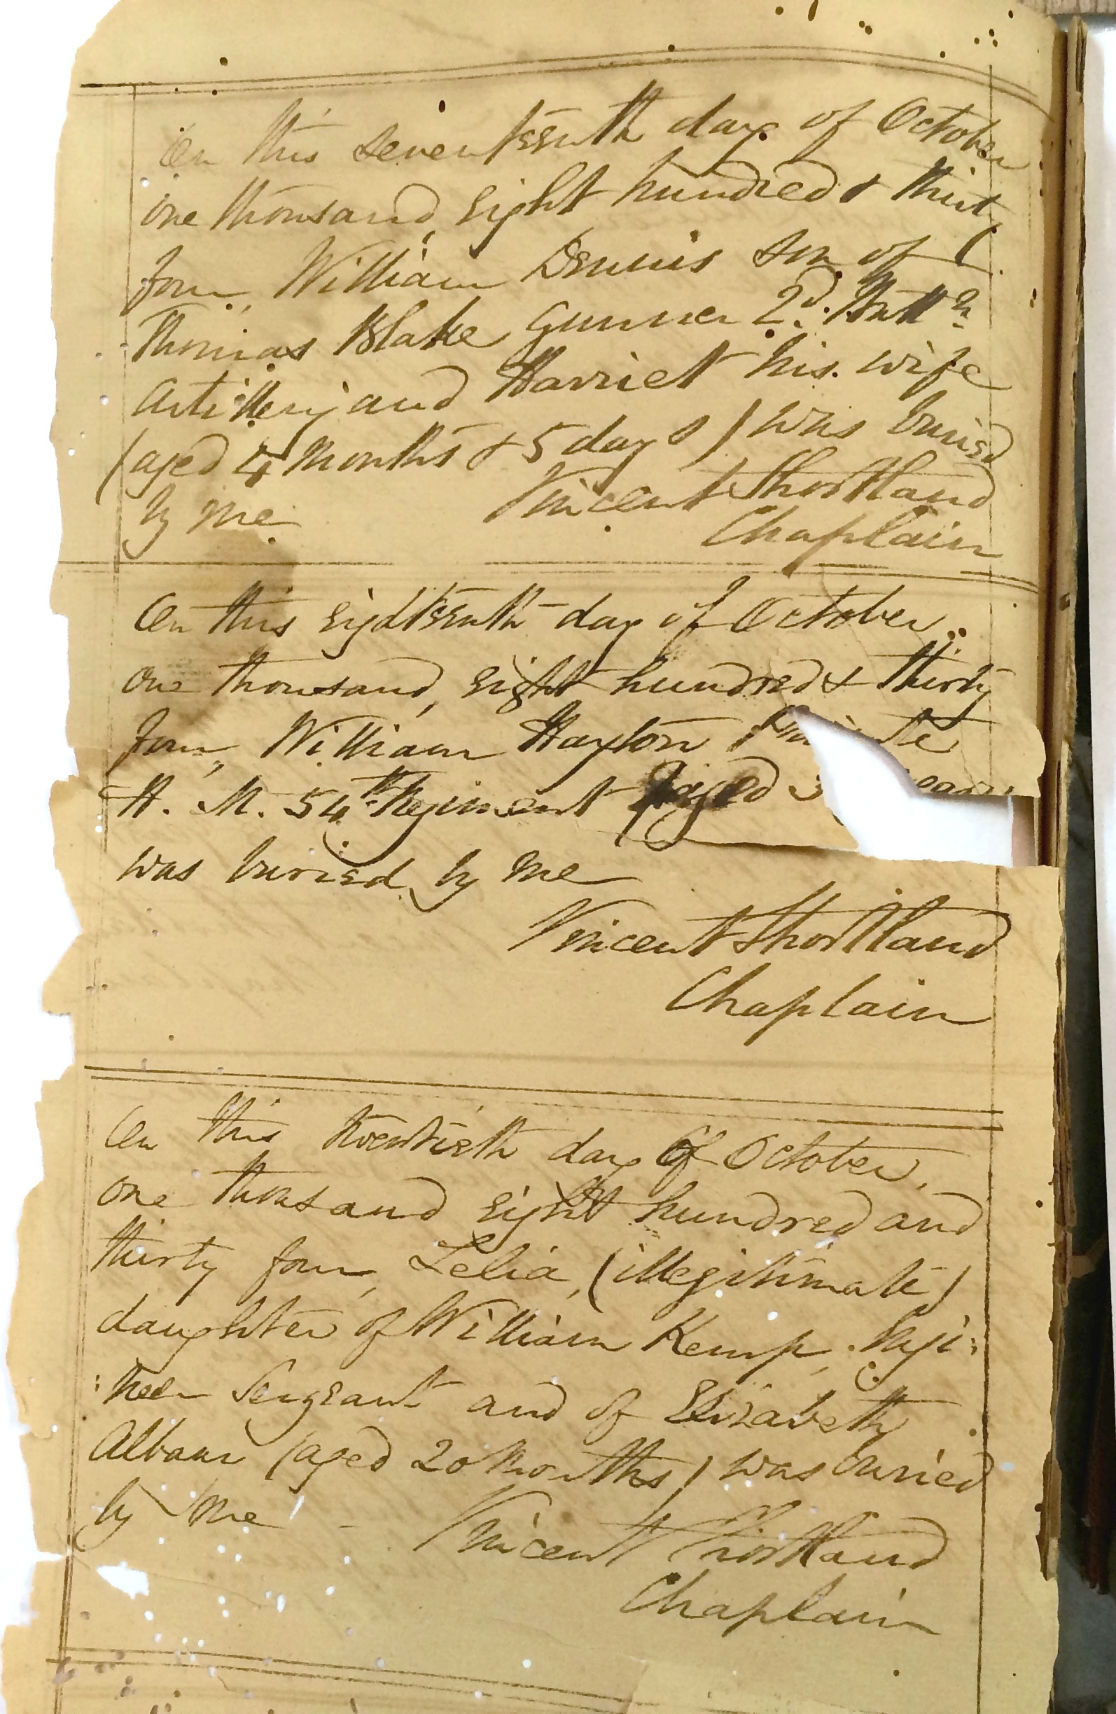 On this seventeenth day of October
one thousand, eight hundred & thirty
four, William Dennis son of
Thomas Blake Gunner 2d. Battn.
Artillery and Harriet his wife
(aged 4 Months & 5 days) was buried
by me Vincent Shortland
Chaplain
On this eighteenth day of October
one thousand, eight hundred & thirty
four, William Hayton
H. M. 54th Regiment (aged 3 years
was buried by me
Vincent Shortland
Chaplain
On this twentieth day of October,
one thousand eight hundred and
thirty four, Lelia, (illegitimate)
daughter of William Kemp,
Sergeant and of Elizabeth
(aged 20 Months) was buried
by me - Vincent Shortland
Chaplain